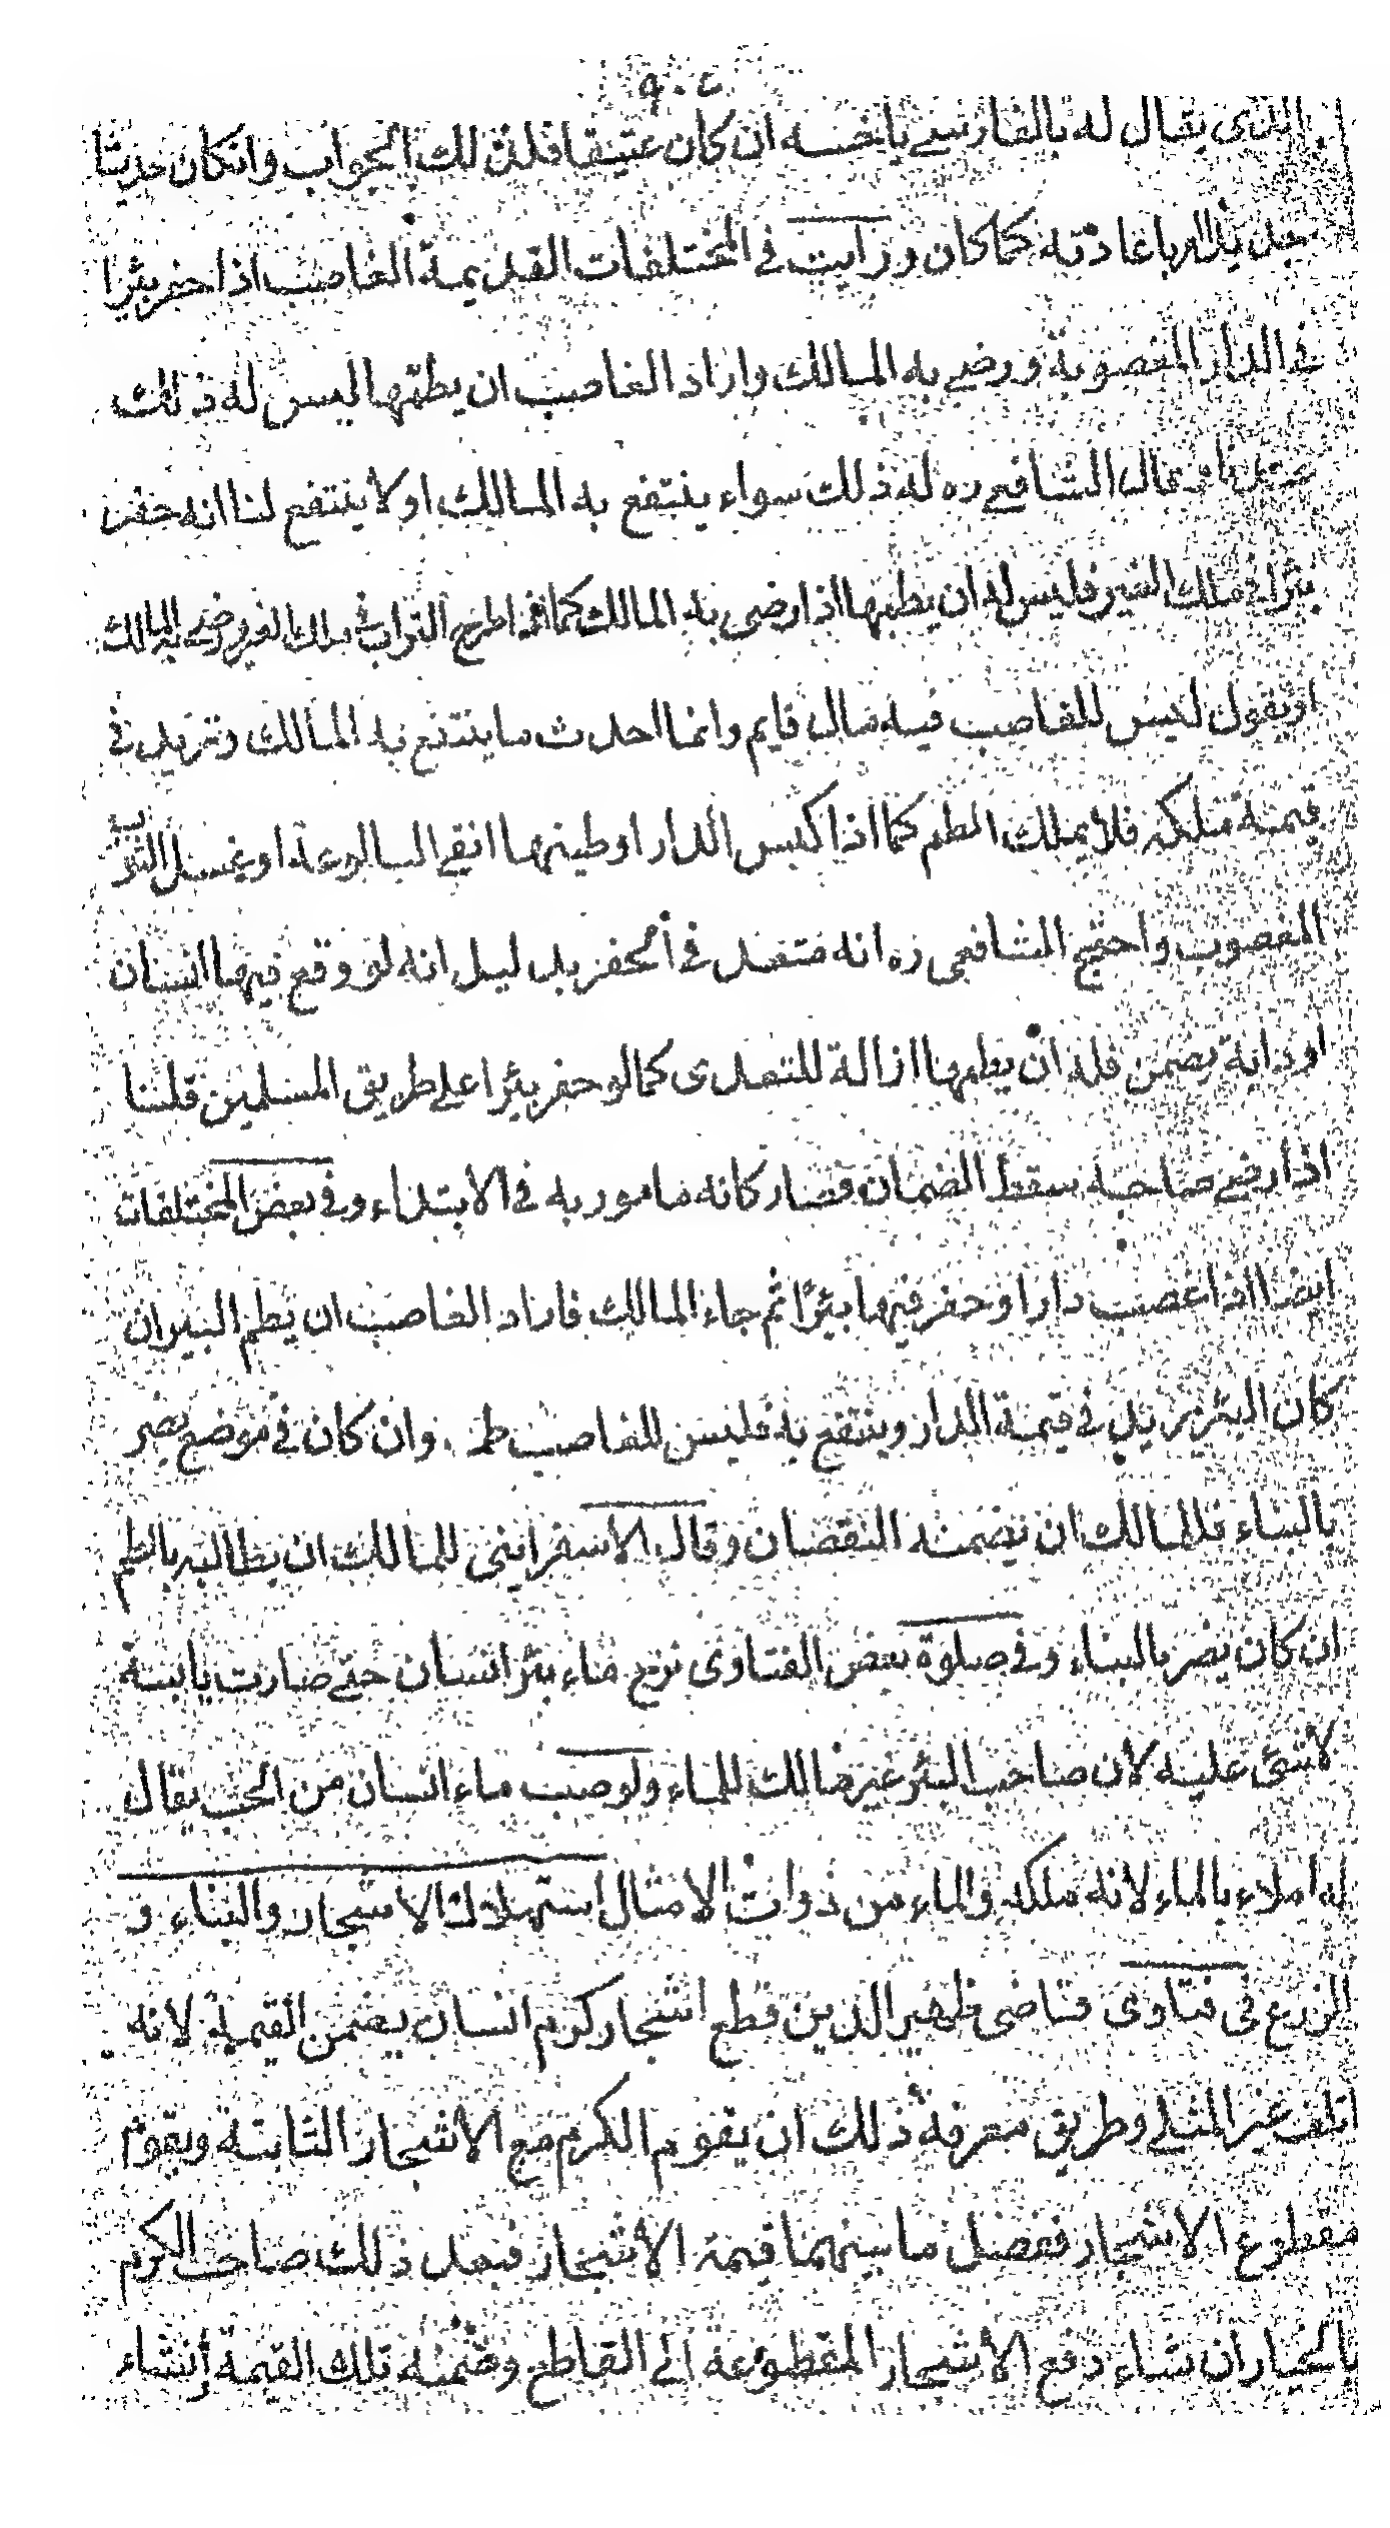 ٩٠٤
الذى يقال له بالفارسے باخسه ان كان عتيقا فكذلك الجواب وانكان حديثا
جديدا امر باعادته كما كان ورايت فى المختلفات القديمة الغاصب اذا حفر بئرا
فى الدار المغصوبة ورضى به المالك واراد الغاصب ان يطمها ليس له ذلك
عندنا وقال الشافعے ره له ذلك سواء ينتفع به المالك او لا ينتفع لنا انه حفر
بئرا فى ملك الغير فليس له ان يطمها اذا رضى به المالك كما اذا طرح التراب فى ملك الغير ورضى به المالك
او نقول ليس للغاصب فيه مال قايم وانما احدث ما ينتفع به المالك وتزيد فى
قيمة ملكه فلا يملك الطم كما اذا كبس الدار او طينها او نقى البالوعة او غسل الثوب
المغصوب واحتج الشافعى ره انه متعد فى الحفر بدليل انه لو وقع فيها انسان
او دابة يضمن فله ان يطمها ازالة للتعدى كما لو حفر بئرا على طريق المسلمين قلنا
اذا رضى صاحبه سقط الضمان فصار كانه مامور به فى الابتداء وفى بعض المختلفات
ايضا اذا غصب دارا وحفر فيها بئرا ثم جاء المالك فاراد الغاصب ان يطم البير ان
كان البئر يزيد فى قيمة الدار وينتفع به فليس للغاصب طمه وان كان فى موضع يضر
بالبناء فللمالك ان يضمنه النقصان وقال الاسفراينى للمالك ان يطالبه بالطم
ان كان يضر بالبناء وفى صلوة بعض الفتاوى نزح ماء بئر انسان حتى صارت يابسة
لا شئ عليه لان صاحب البئر غير مالك للماء ولو صب ماء انسان من الحب يقال
له املاء بالماء لانه ملكه والماء من ذوات الامثال استهلاك الاشجار والبناء و
الزرع فى فتاوى قاضى ظهير الدين قطع اشجار كرم انسان يضمن القيمة لانه
اتلف غير المثلے وطريق معرفة ذلك ان يقوم الكرم مع الاشجار الثابتة ويقوم
مقطوع الاشجار ففضل ما بينهما قيمة الاشجار فبعد ذلك صاحب الكرم
بالخيار ان شاء دفع الاشجار المقطوعة الى القاطع وضمنه تلك القيمة وان شاء